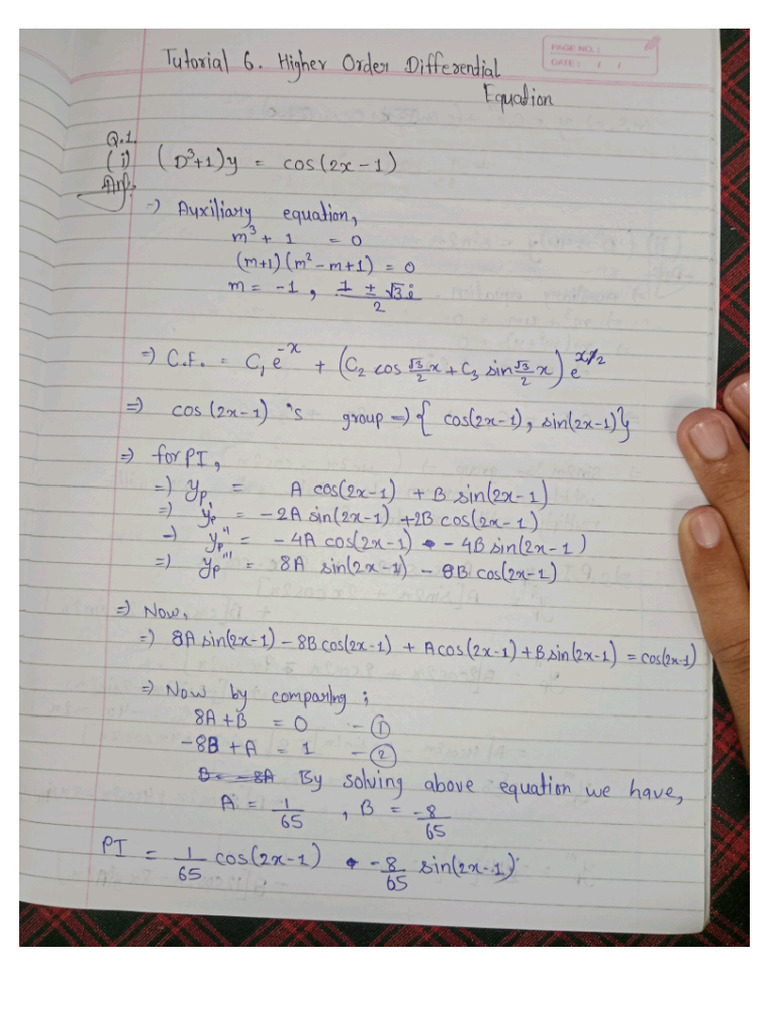 Tutorial 6. Higher Order Differential
Equation
PAGE NO.:
DATE: / /
Q.1.
(i) (D³+1)y = cos(2x-1)
Ans.
=) Auxiliary equation,
m³ + 1 = 0
(m+1)(m²-m+1) = 0
m = -1, (1 ± √3i)/2
=) C.F. = C₁e^(-x) + (C₂ cos (√3/2)x + C₃ sin (√3/2)x) e^(x/2)
=) cos(2x-1) 's group =) { cos(2x-1), sin(2x-1)}
=) for PI,
=) yp = A cos(2x-1) + B sin(2x-1)
=) yp' = -2A sin(2x-1) +2B cos(2x-1)
-) yp'' = -4A cos(2x-1) - 4B sin(2x-1)
=) yp''' = 8A sin(2x-1) - 8B cos(2x-1)
=) Now,
=) 8A sin(2x-1) - 8B cos(2x-1) + A cos(2x-1) + B sin(2x-1) = cos(2x-1)
=) Now by comparing;
8A + B = 0 - ①
-8B + A = 1 - ②
By solving above equation we have,
A = 1/65 , B = -8/65
PI = 1/65 cos(2x-1) -8/65 sin(2x-1)